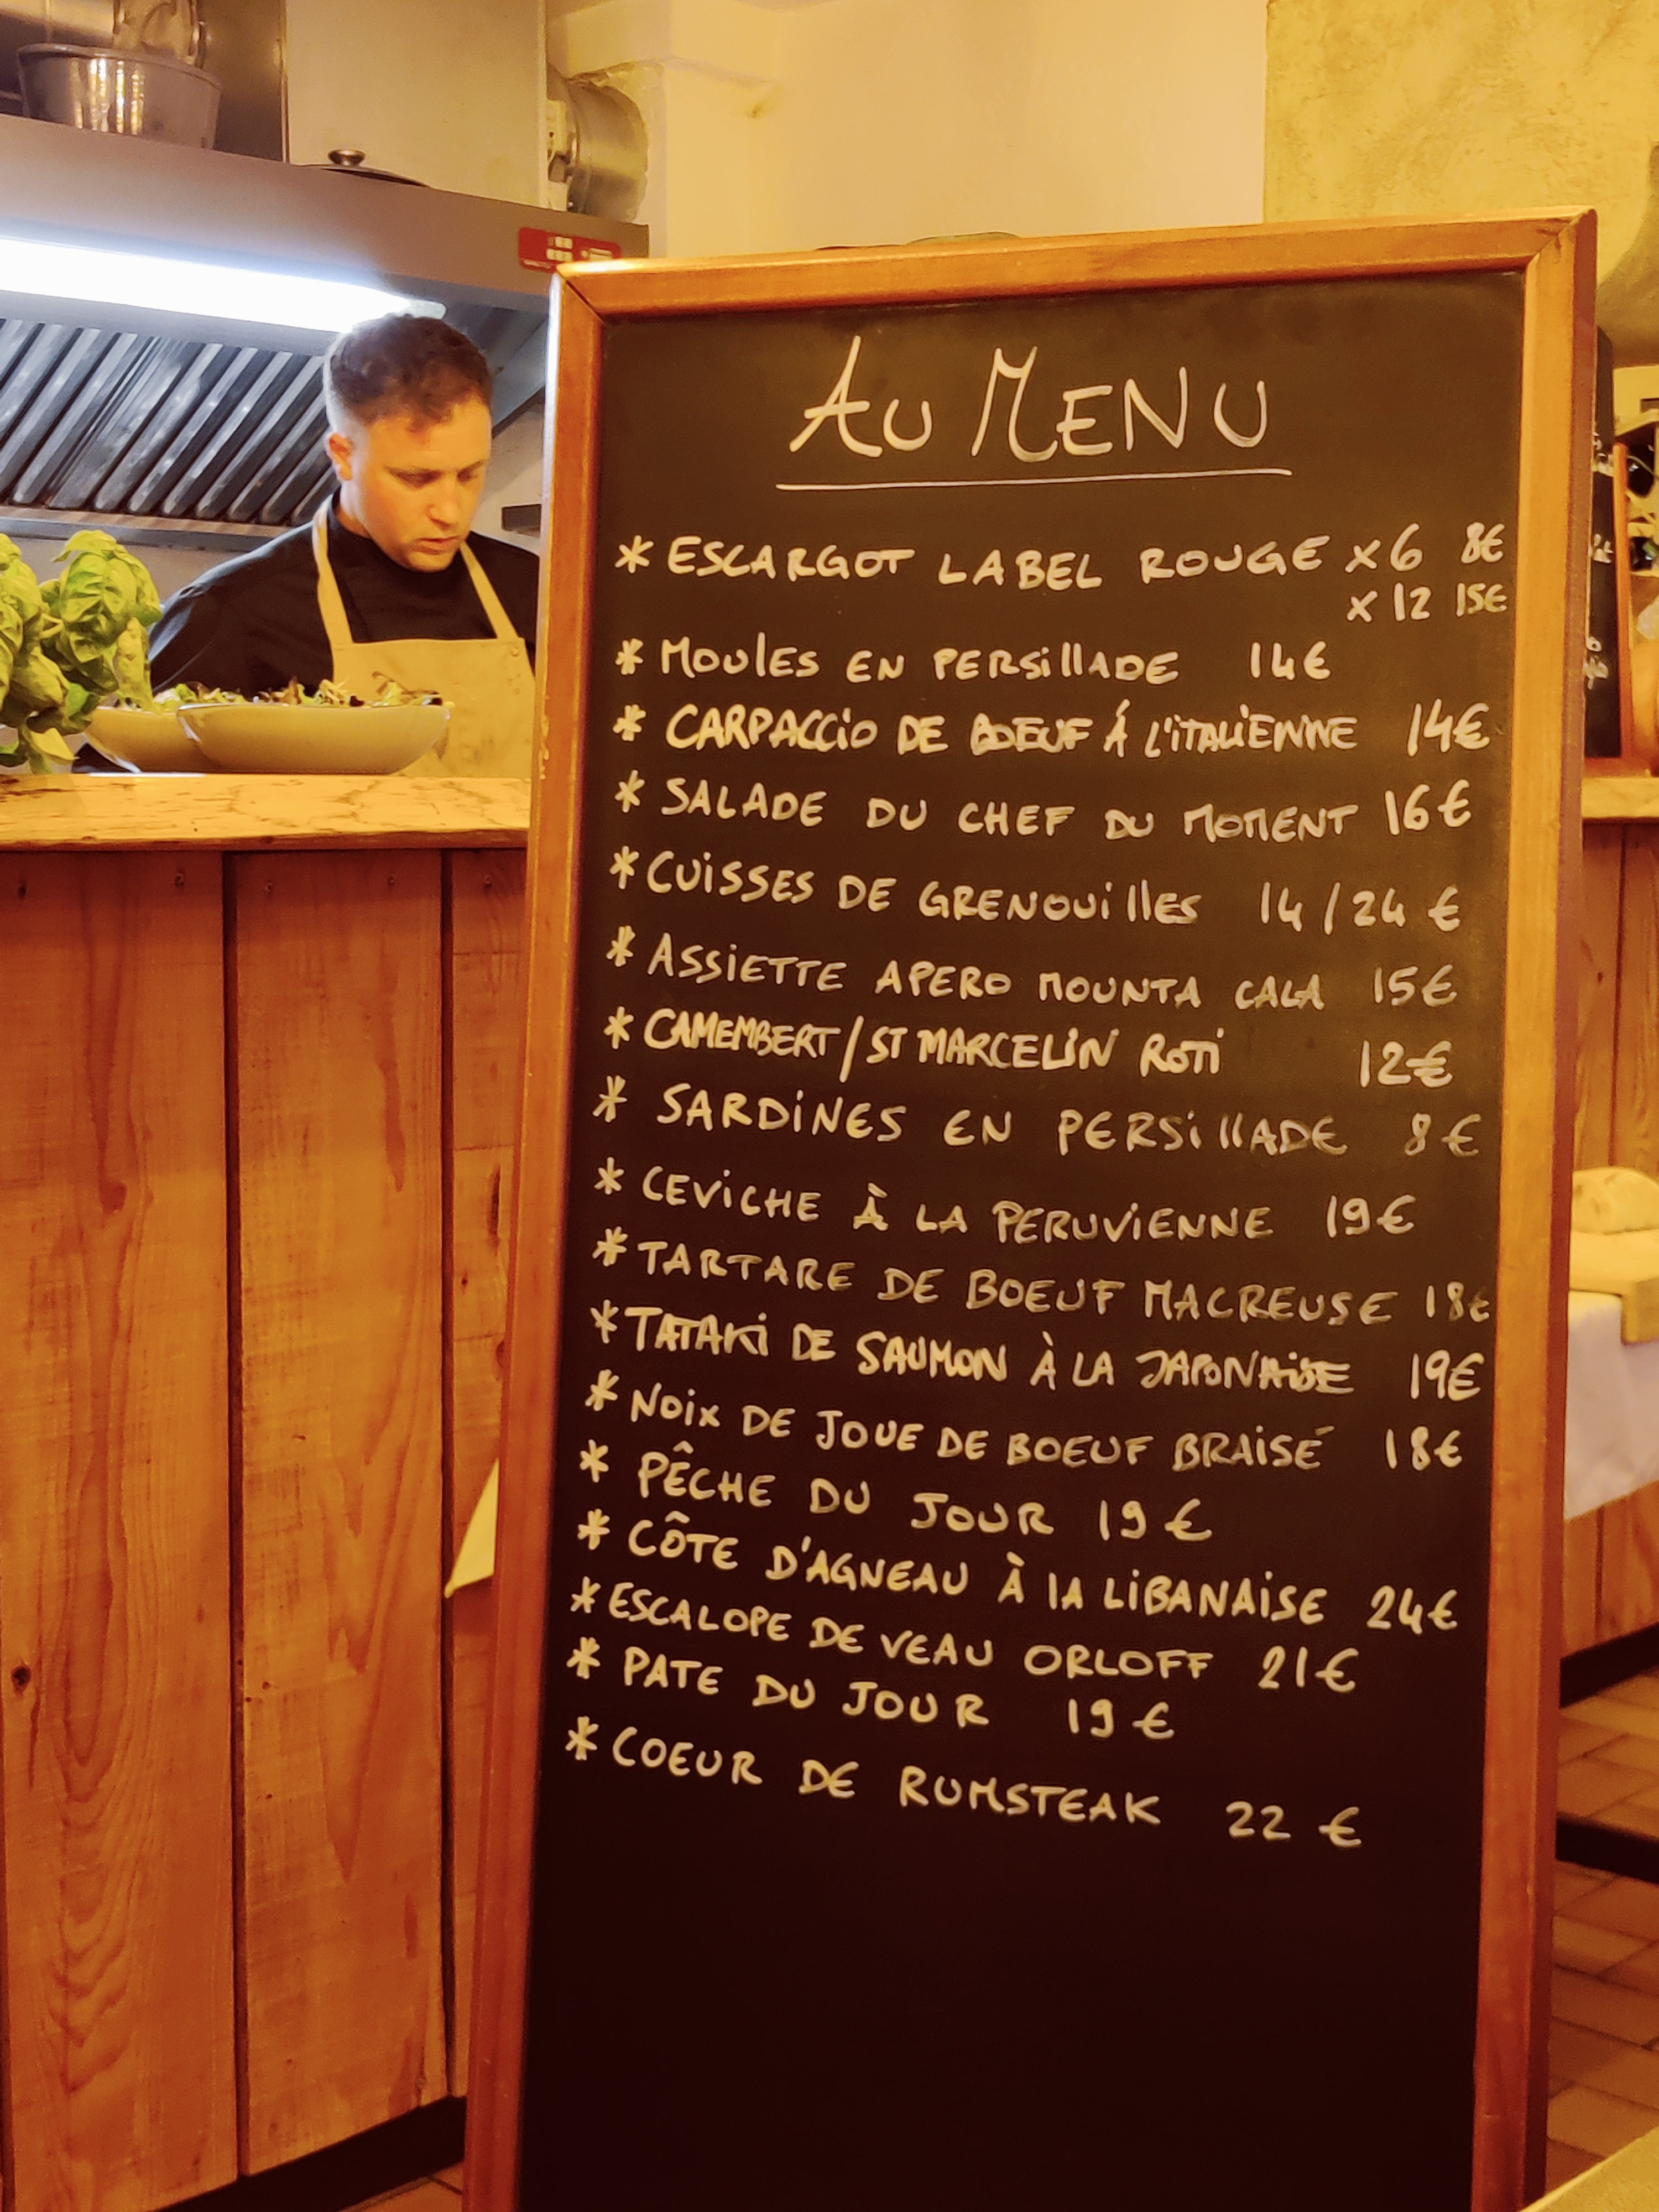 AU MENU
* ESCARGOT LABEL ROUGE x6 8€
x 12 15€
* MOULES EN PERSILLADE 14€
* CARPACCIO DE BOEUF Á L'ITALIENNE 14€
* SALADE DU CHEF DU MOMENT 16€
* CUISSES DE GRENOUILLES 14/24 €
* ASSIETTE APERO MOUNTA CALA 15€
* CAMEMBERT/ST MARCELIN ROTI 12€
* SARDINES EN PERSILLADE 8€
* CEVICHE À LA PERUVIENNE 19€
* TARTARE DE BOEUF MACREUSE 18€
* TATAKI DE SAUMON À LA JAPONAISE 19€
* NOIX DE JOUE DE BOEUF BRAISÉ 18€
* PÊCHE DU JOUR 19€
* CÔTE D'AGNEAU À LA LIBANAISE 24€
* ESCALOPE DE VEAU ORLOFF 21€
* PATE DU JOUR 19€
* COEUR DE RUMSTEAK 22 €